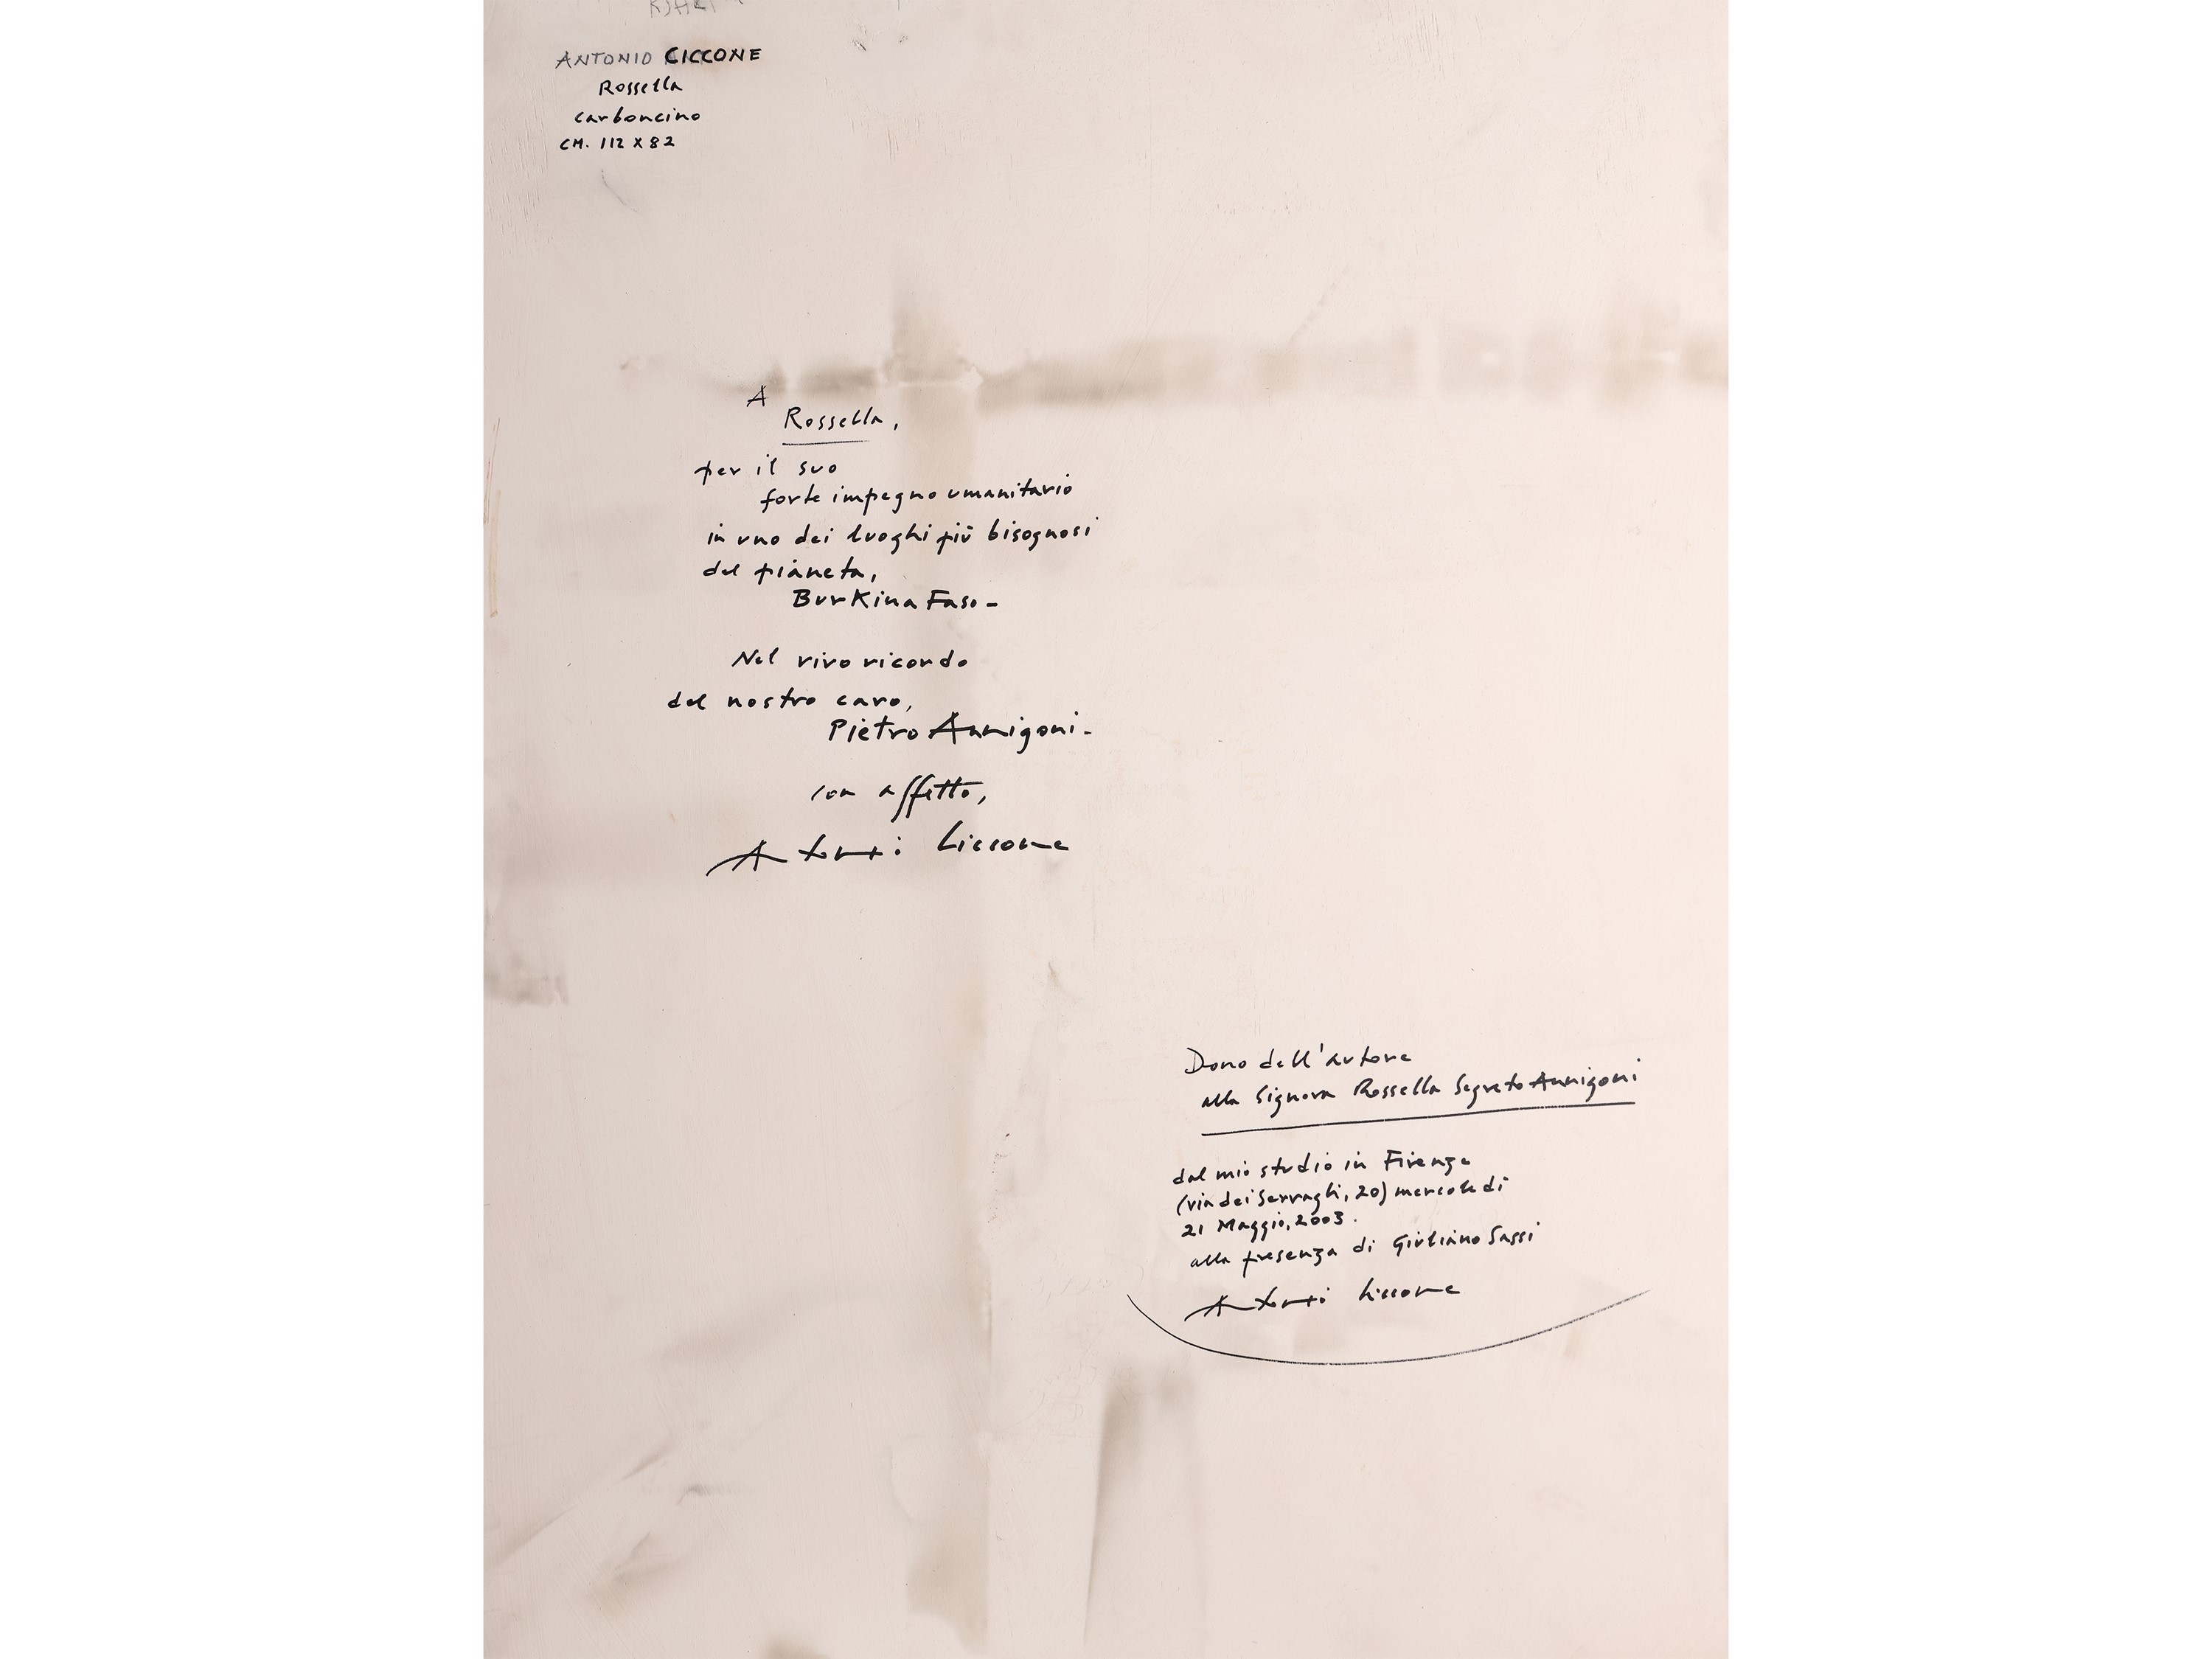 ANTONIO CICCONE
Rossella
carboncino
CM. 112 X 82
A
Rossella,
per il suo
forte impegno umanitario
in uno dei luoghi più bisognosi
del pianeta,
Burkina Faso -
Nel vivo ricordo
del nostro caro,
Pietro Annigoni -
con affetto,
Antonio Ciccone
Dono dell'autore
alla Signora Rossella Segreto Annigoni
dal mio studio in Firenze
(via dei Serragli, 20) mercoledi
21 Maggio, 2003.
alla presenza di Giuliano Sassi
Antonio Ciccone